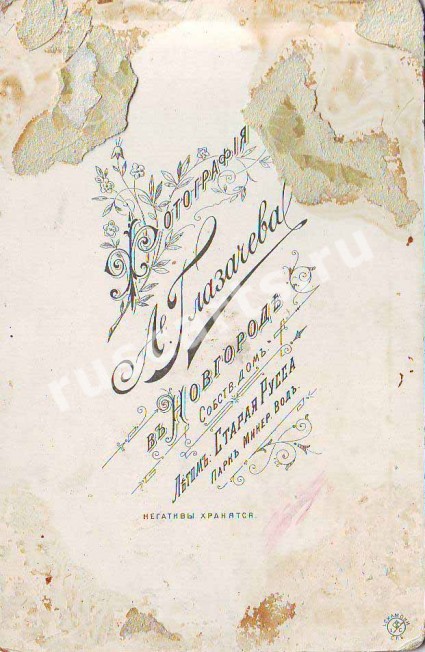 Фотографія
Ал. Глазачева
въ Новгородѣ
Собств. домъ.
Лѣтомъ. Старая Русса
Паркъ Минер. Водъ.
НЕГАТИВЫ ХРАНЯТСЯ.